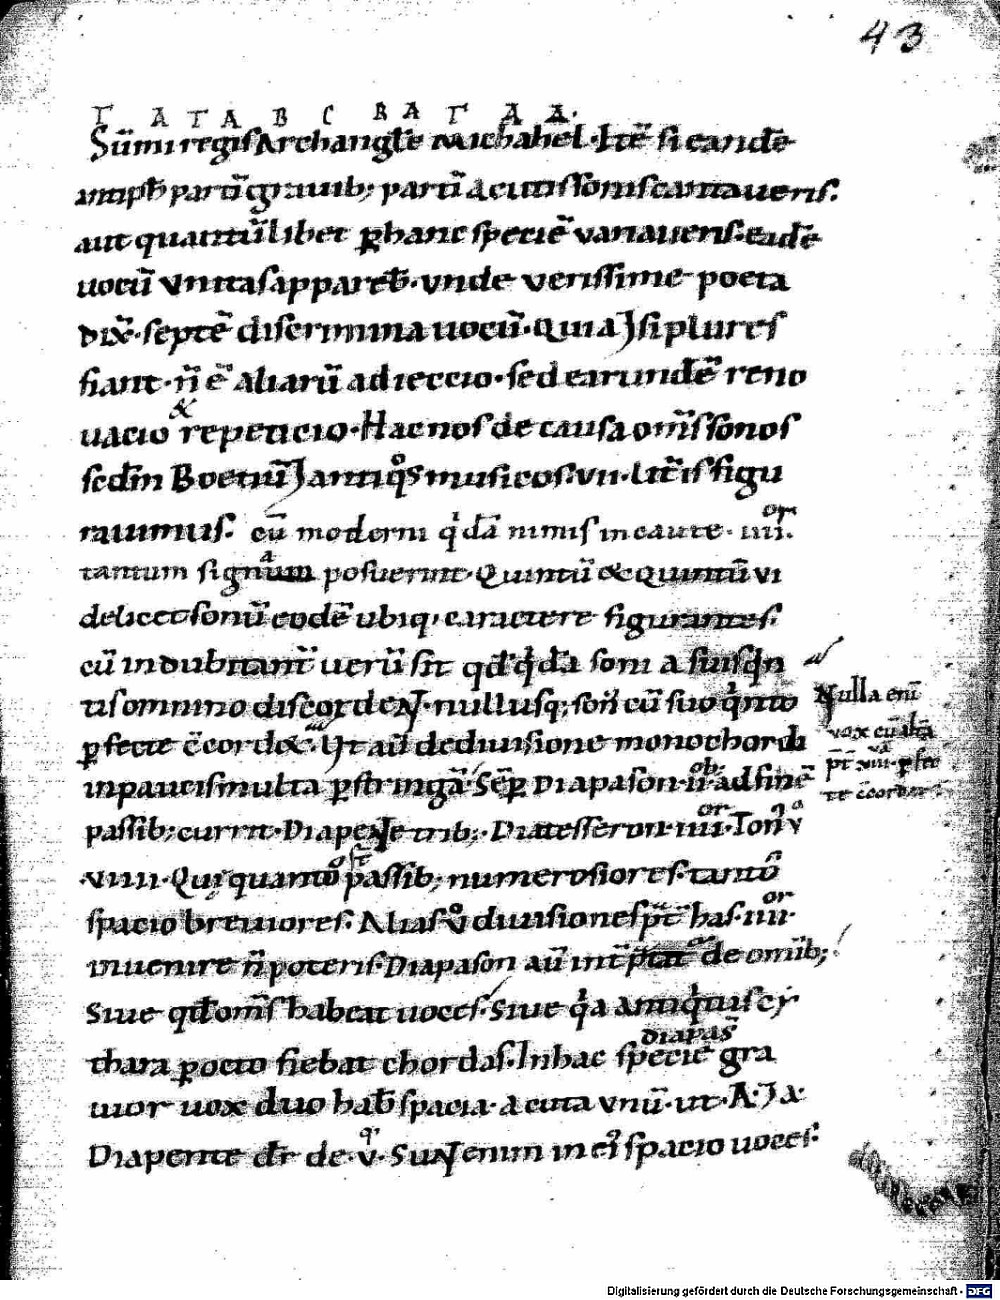 43
Γ A Γ A B C B A Γ A A.
Sūmi regis Archangłe Michahel. Itē si eandē
antiph partī gravib; partī acutis sonis cantaveris.
aut quantūlibet p hanc speciē variaveris. eadē
vocū unitas apparebit. unde verissime poeta
dix. septē discrimina vocū. Quia & si plures
fiant. n̄ ē aliarū adieccio. sed earundē reno
&
vacio repeticio. Hac nos de causa om̄s sonos
sedm Boetiū & antiqos musicos. vii. litīs figu
ravimus. cū moderni qdā nimis incaute. iiii.or
tantum signa posuerint. Quintū & quintū vi
delicet sonū eodē ubiq; caractere figurantes.
cū indubitant verū sit qđ qdā soni a suis qn
tis omnino discordent. nullusq; son cū suo qnto
pfecte ccordet. Ut aū de divisione monochordi
in paucis multa pstringā. Sēp Diapason. ii.ob. ad finē
passib; currit. Diapente trib;. Diatesseron. iiii.or Ton v
viiii. Qui quanto passib; numerosiores. tanto
spacio breviores. Alias vo divisiones pt has. iiii.or
invenire n̄ poteris. Diapason aū intptat de omib;
Sive qđ om̄s habeat voces. Sive qa antiqtus cy
thara p octo fiebat chordas. In hac specie gra
diapas
vior vox duo hab spacia. acuta unū. ut. A. & a.
Diapente dr de. v. Sunt enim in ei spacio voces.
Nulla enī
vox cū alia
pt xiii. pfec
te ccordat
Digitalisierung gefördert durch die Deutsche Forschungsgemeinschaft - DFG